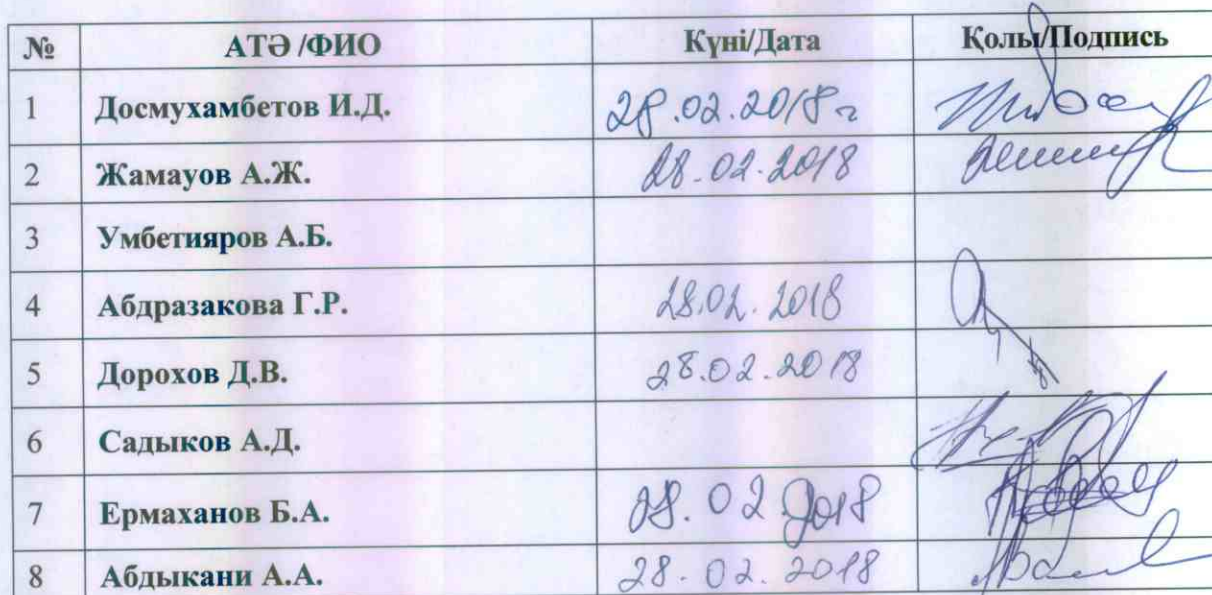 № АТӘ /ФИО Күні/Дата Қолы/Подпись
1 Досмухамбетов И.Д. 28.02.2018 г
2 Жамауов А.Ж. 28.02.2018
3 Умбетияров А.Б.
4 Абдразакова Г.Р. 28.02.2018
5 Дорохов Д.В. 28.02.2018
6 Садыков А.Д.
7 Ермаханов Б.А. 28.02 2018
8 Абдыкани А.А. 28.02.2018